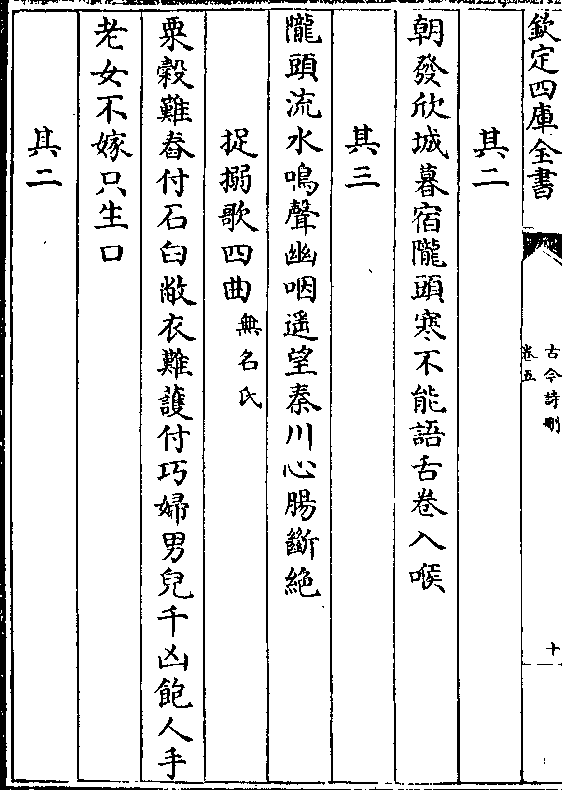 欽定四庫全書
古今詩刪
卷五
十
其二
朝發欣城暮宿隴頭寒不能語舌卷入喉
其三
隴頭流水鳴聲幽咽遥望秦川心腸斷絶
捉搦歌四曲 無名氏
粟榖難舂付石臼敝衣難護付巧婦男兒千凶飽人手
老女不嫁只生口
其二